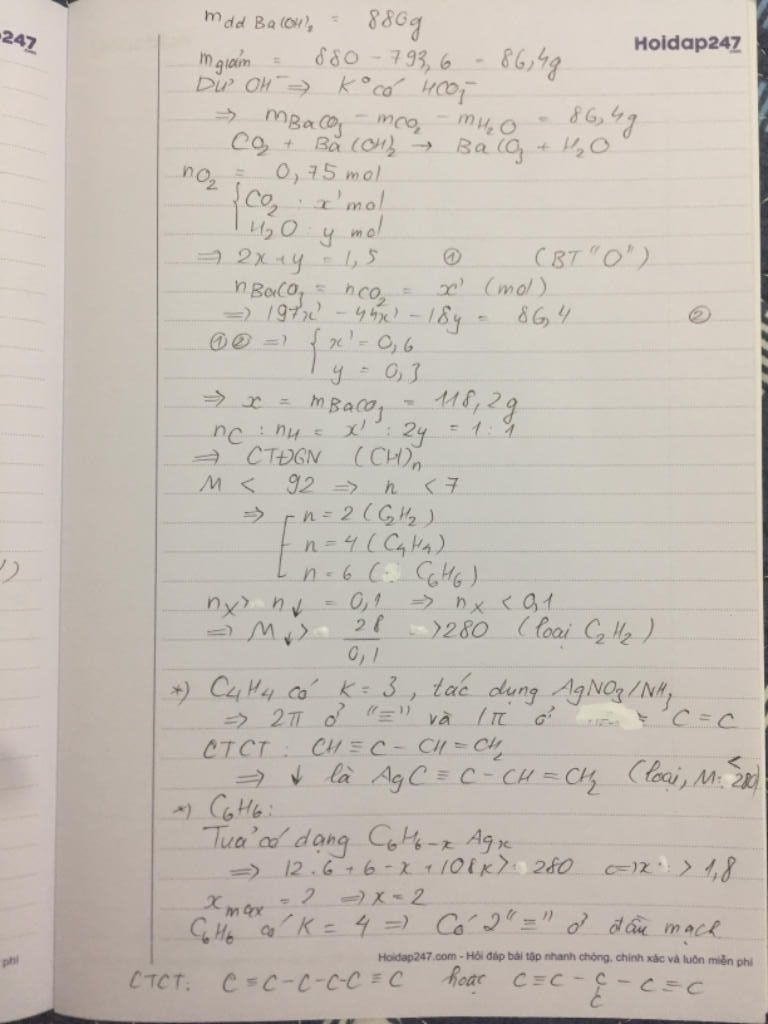 m dd Ba(OH)₂ = 880g
247
Hoidap247
m giảm = 880 - 793,6 = 86,4g
Dư OH⁻ ⇒ K° có HCO₃⁻
⇒ mBaCO₃ - mCO₂ - mH₂O = 86,4g
CO₂ + Ba(OH)₂ → BaCO₃ + H₂O
nO₂ = 0,75 mol
{ CO₂ : x' mol
H₂O : y mol
⇒ 2x + y = 1,5 ① (BT "O")
nBaCO₃ = nCO₂ = x' (mol)
⇒ 197x' - 44x' - 18y = 86,4 ②
①② ⇒ { x' = 0,6
y = 0,3
⇒ x = mBaCO₃ = 118,2g
nC : nH = x' : 2y = 1 : 1
⇒ CTĐGN (CH)n
M < 92 ⇒ n < 7
⇒ [ n = 2 (C₂H₂)
n = 4 (C₄H₄)
n = 6 ( C₆H₆)
nX > n↓ = 0,1 ⇒ nX < 0,1
⇒ M↓ > 28/0,1 > 280 (loại C₂H₂)
*) C₄H₄ có K = 3, tác dụng AgNO₃/NH₃
⇒ 2π ở "≡" và 1π ở C = C
CTCT : CH ≡ C - CH = CH₂
⇒ ↓ là AgC ≡ C - CH = CH₂ (loại, M < 280)
*) C₆H₆:
Tủa có dạng C₆H₆₋ₓ Agₓ
⇒ 12.6 + 6 - x + 108x > 280 ⇔ x > 1,8
x max = 2 ⇒ x = 2
C₆H₆ có K = 4 ⇒ Có 2 "≡" ở đầu mạch
phí
Hoidap247.com - Hỏi đáp bài tập nhanh chóng, chính xác và luôn miễn phí
CTCT: C ≡ C - C - C - C ≡ C hoặc C ≡ C - C - C ≡ C
C